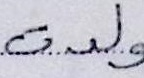 ولدت